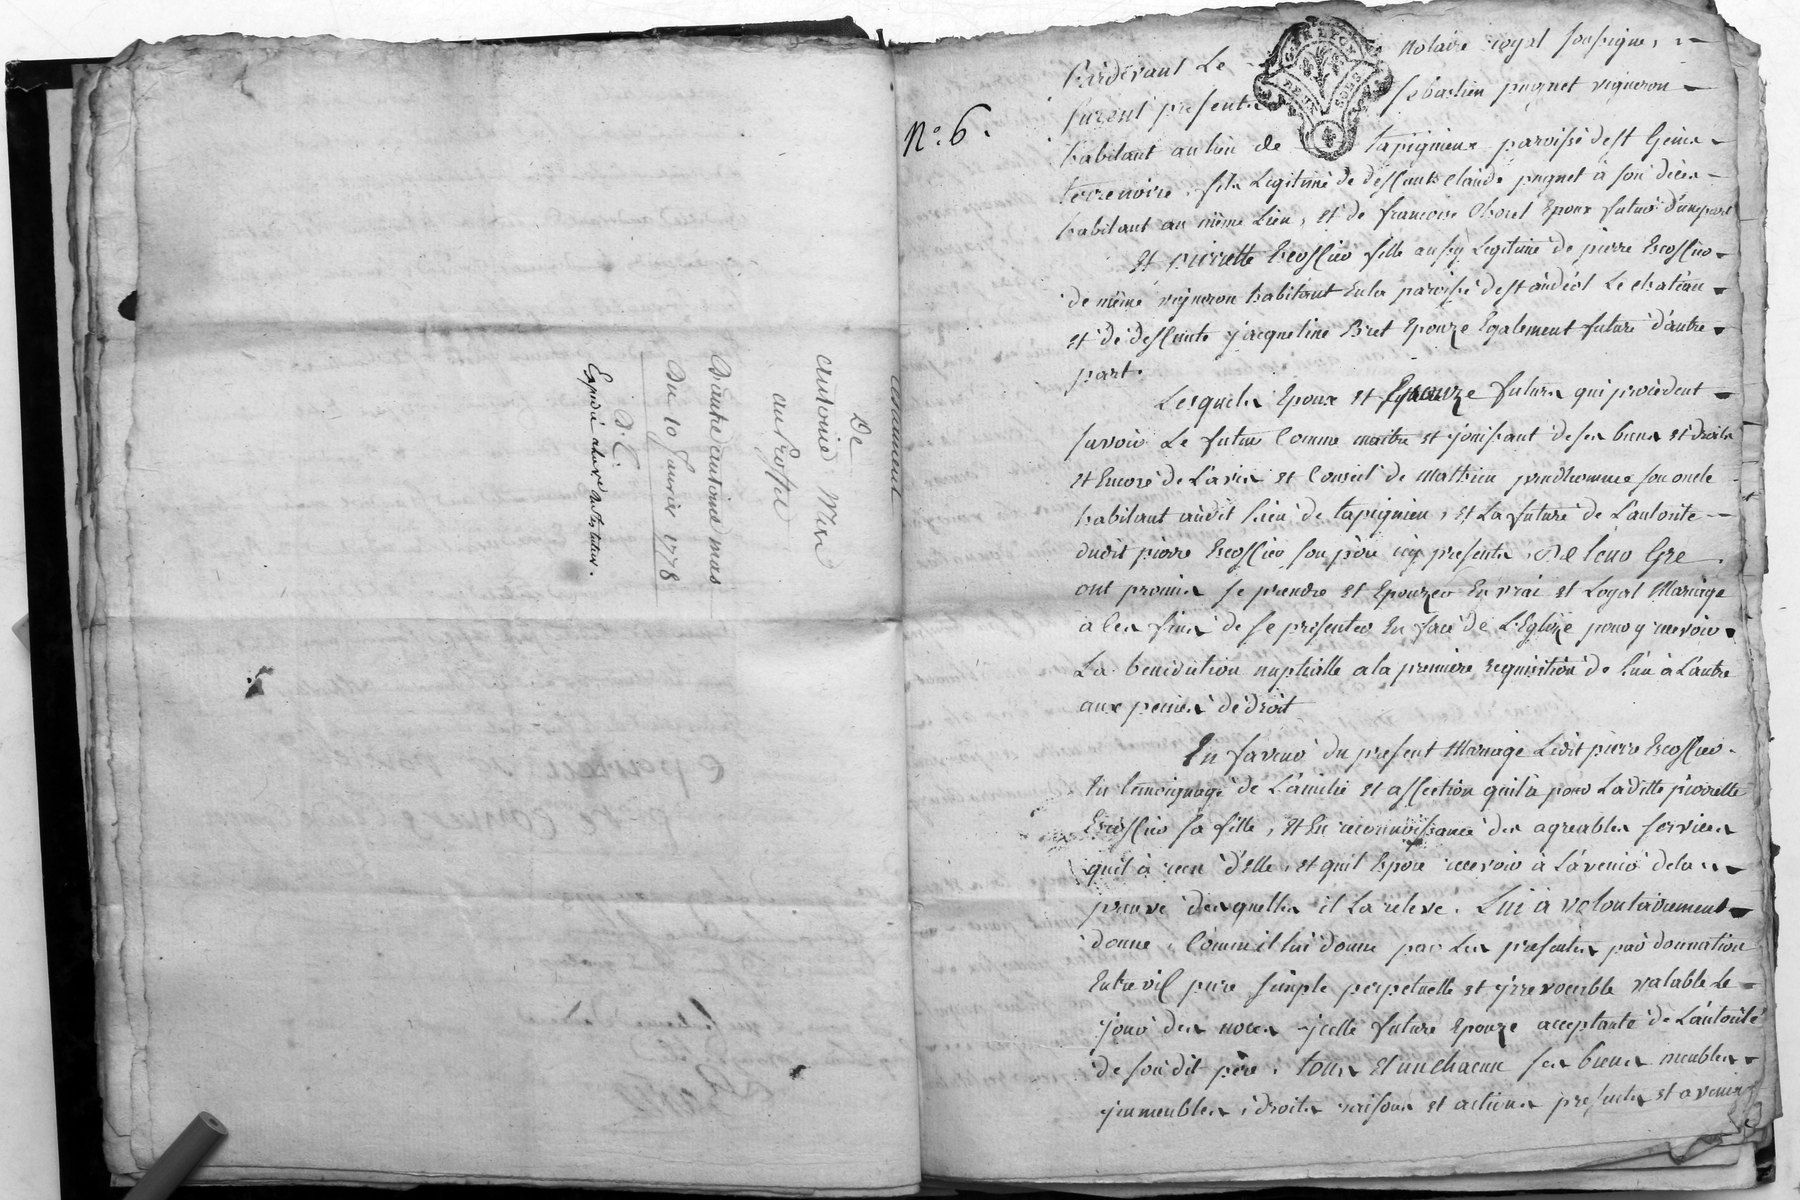 Testament
De
antoine Mas
au profit
D'autre antoine mas
Du 10 Janvier 1778
D. C.
Expedié
N.º 6.
GEN LYON
DEUX SOLS
Pardevant Le notaire royal soussigné,
furent presents sebastien pugnet vigneron
habitant au lieu de tapignieux paroisse de st Genis
terrenoire, fils Legitime de deffunts claude pugnet à son deces
habitant au même Lieu, et de francoise Chorel Epoux futur d'une part
Et pierrette Escoffier fille aussy Legitime de pierre Escoffier
de même vigneron habitant En la paroisse de st andéol Le chateau
et de deffunte jacqueline Bret Epouze Egalement future d'autre
part.
Lesquels Epoux et Epouze futurs qui procedent
savoir Le futur Comme maitre et jouissant de ses biens et droits
et Encore de L'avis et Conseil de Mathieu prudhomme son oncle
habitant audit Lieu de tapignieu, et La future de L'autorite
dudit pierre Escoffier son père icy present, de leur Gre
ont promis se prendre et Epouzer En vrai et Loyal Mariage
a Ces fins de se presenter En face de L'Eglize pour y recevoir
La benediction nuptialle a la premiere requisition de L'un à L'autre
aux peines de droit
En faveur du present Mariage Ledit pierre Escoffier
En temoignage de L'amitié et affection quil à pour Laditte pierrette
Escoffier sa fille, et En reconnoissance des agreables services
quil à reçu d'Elle, et quil Espere recevoir à L'avenir de la
preuve desquelles il La releve, Lui à volontairement
donné, Comme il lui donne par Les presentes par donnation
Entre vif pure simple perpetuelle et yrrevocable valable Le
jour des noces ycelle future Epouze acceptante de L'autorité
de son dit père, tous Et un chacun ses biens meubles
ymmeubles, droits raisons et actions presents et avenir